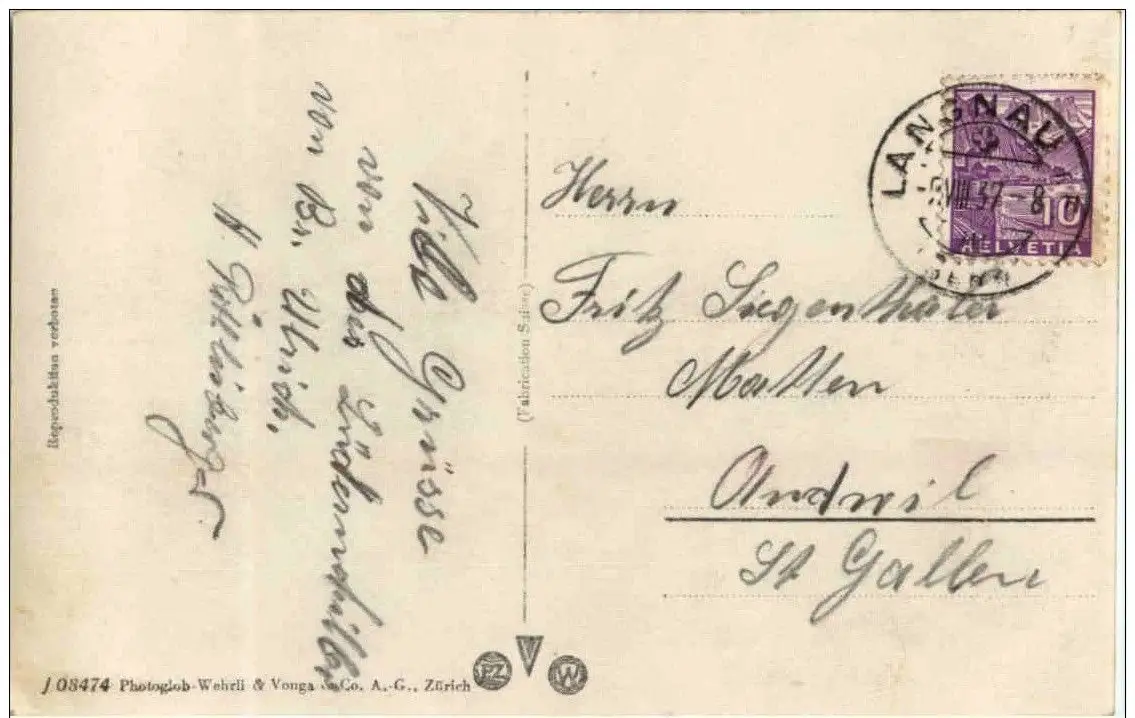 Viele Grüsse
von der Lüdernalp
von Br. Ulrich.
Herrn
Fritz Siegenthaler
Matten
Andwil
St Gallen
LANGNAU
VIII.37-8
BERN
10
HELVETIA
(Fabrication Suisse)
Reproduktion verboten
J 08474 Photoglob-Wehrli & Vouga & Co. A.-G., Zürich
PZ
W